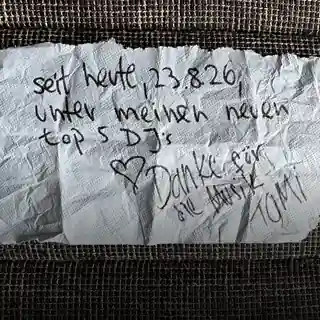 seit heute, 23.8.26,
unter meinen neuen
top 5 DJs
♡ Danke für
die Musik
TOMI